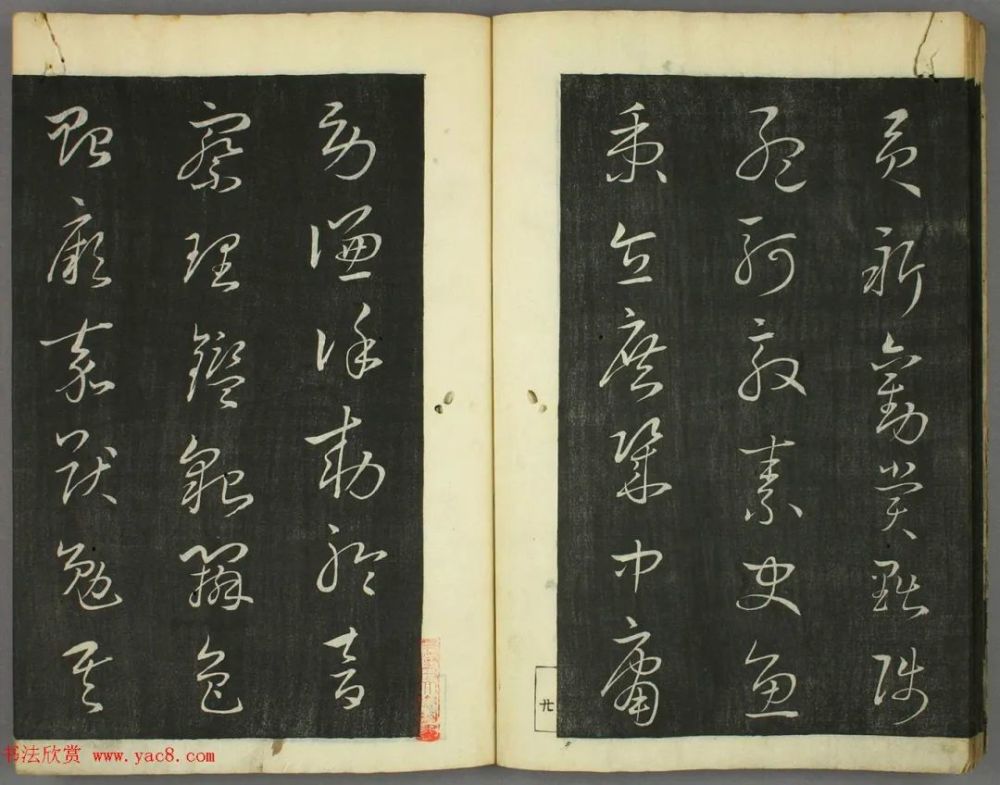 貢新勸賞黜陟
孟軻敦素史魚
秉直庶幾中庸
勞謙謹敕聆音
察理鑑貌辨色
貽厥嘉猷勉其
廿
书法欣赏 www.yac8.com